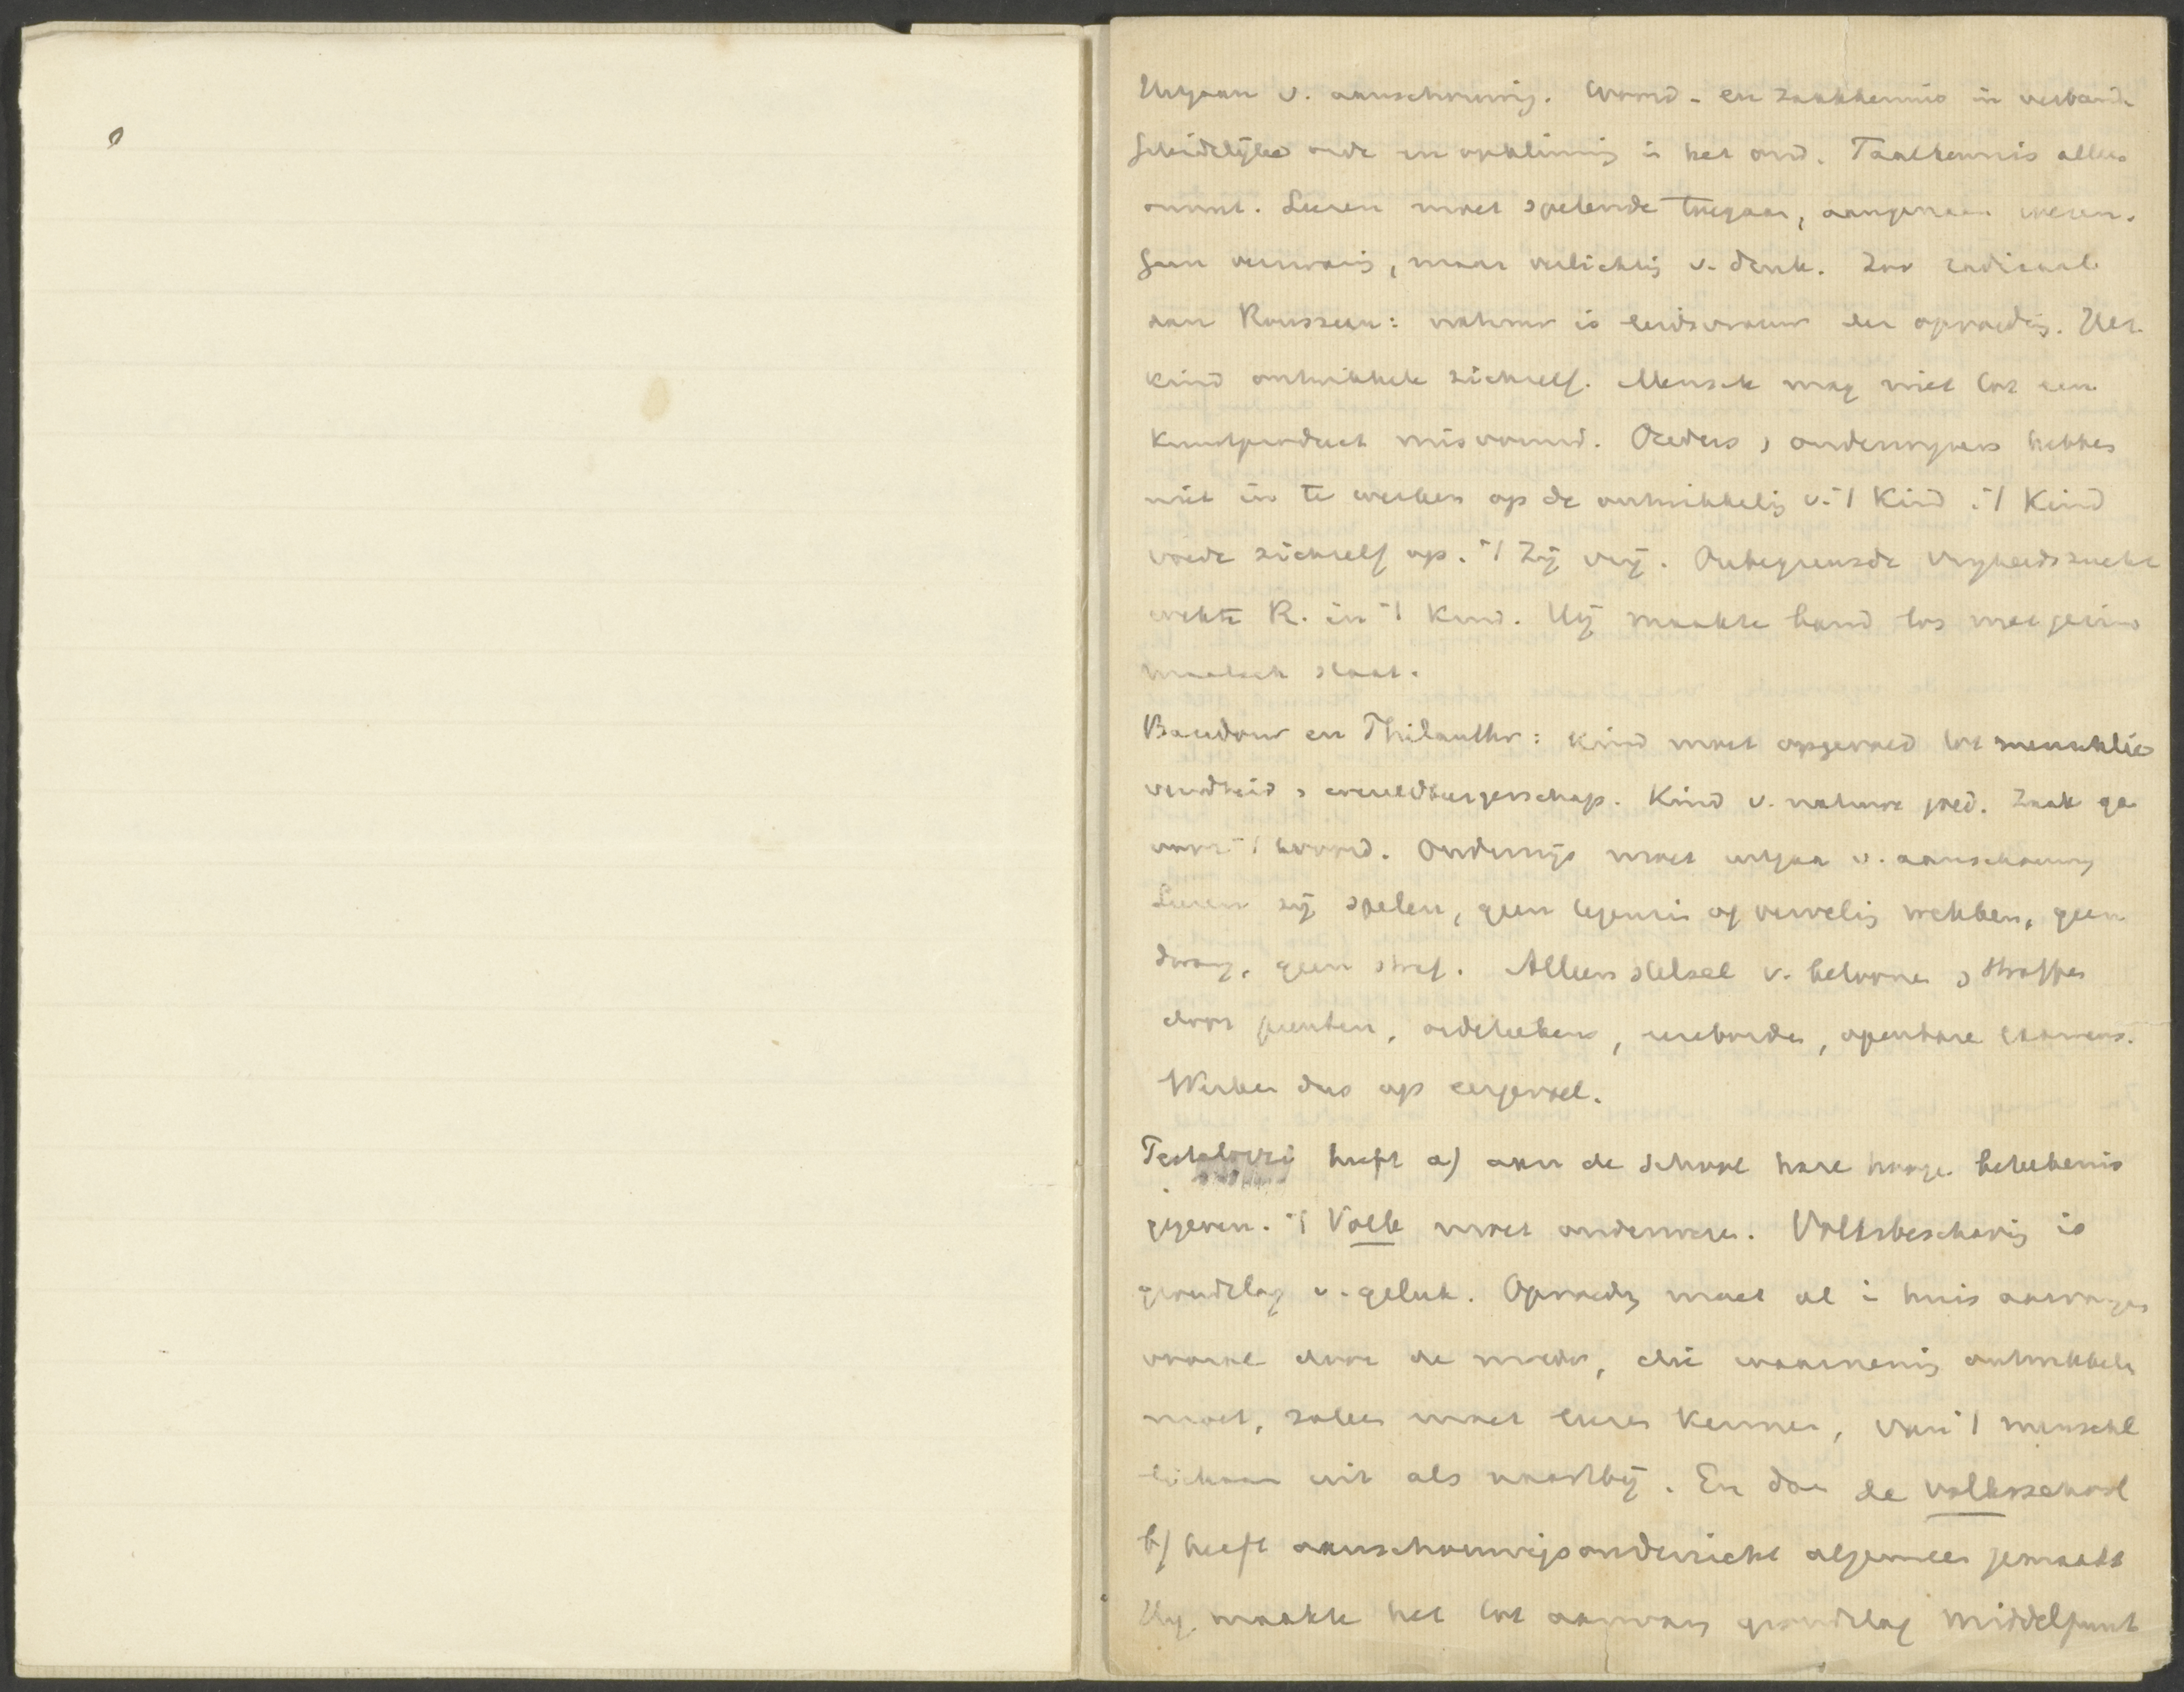 Uitgaan v. aanschouwing. Woord- en zaakkennis in verband
Geleidelijke orde en opklimming in het ond. Taalkennis alles
omvat. Leeren moet spelende toegaan, aangenaam wezen.
Geen verwarring, maar verlichting v. denk. Zoo radicaal
aan Rousseau: natuur is leidsvrouw der opvoeding. Het
kind ontwikkele zichzelf. Mensch mag niet tot een
kunstproduct misvormd. Oeders, onderwijzers hebben
niet in te werken op de ontwikkeling v. 't Kind. 't Kind
voede zichzelf op. 't Zij vrij. Onbegrensde vrijheidszucht
wekte R. in 't Kind. Hij maakte band los met gezin
maatsch staat.
Basedow en Philanthr: Kind moet opgevoed tot menschlie
vendheid, wereldburgerschap. Kind v. nature goed. Zaak ga
voor 't woord. Onderwijs moet uitgaan v. aanschouwing
Leeren zij spelen, geen tegenzin of verveling wekken, geen
dwang, geen straf. Alleen stelsel v. beloonen, straffen
door punten, ordeteekens, eereborden, openbare examens.
Werken dus op eergevoel.
Pestalozzi heeft a) aan de school hare hooge beteekenis
gegeven. 't Volk moet onderwezen. Volksbeschaving is
grondslag v. geluk. Opvoeding moet al in huis aanvangen
vooral door de moeder, die waarneming ontwikkelen
moet, zaken moet leeren kennen, van 't menschl
lichaam uit als naastbij. En dan de volksschool
b) heeft aanschouwingsonderricht algemeen gemaakt
Hij maakte het tot aanvang grondslag middelpunt